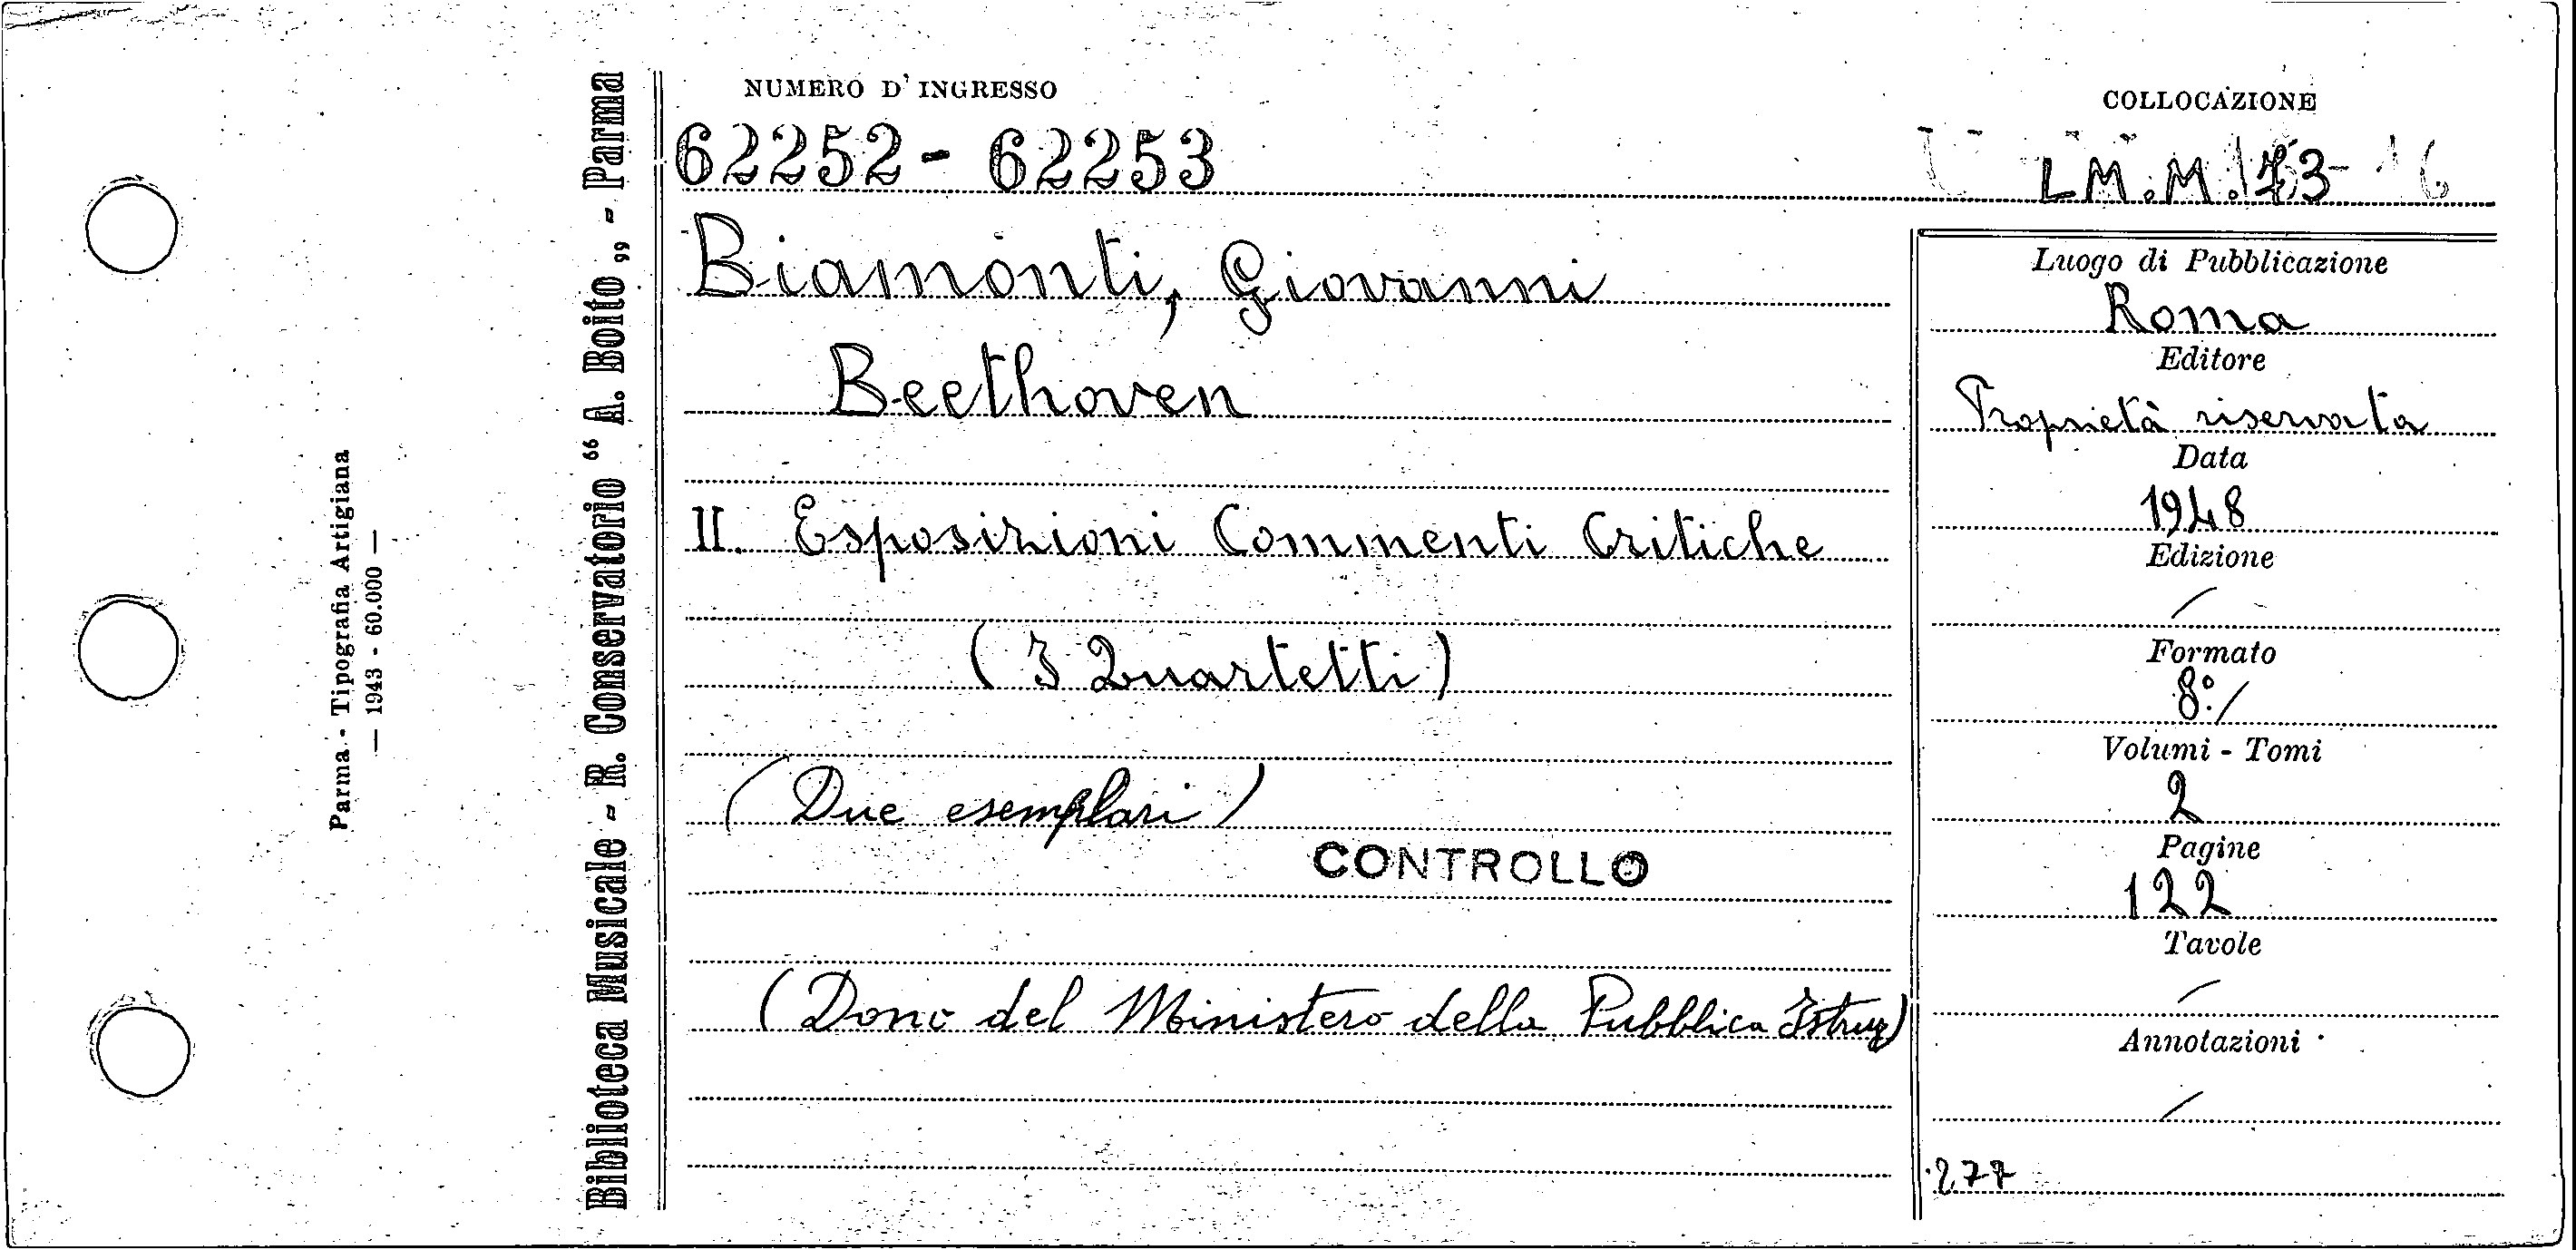 Parma - Tipografia Artigiana
— 1943 - 60.000 —
Biblioteca Musicale - R. Conservatorio “ A. Boito „ - Parma
NUMERO D' INGRESSO
62252 - 62253
COLLOCAZIONE
LM.M.
Biamonti, Giovanni
Beethoven
II. Esposizioni Commenti Critiche
(I Quartetti)
(Due esemplari)
CONTROLLO
(Dono del Ministero della Pubblica Istruz)
Luogo di Pubblicazione
Roma
Editore
Proprietà riservata
Data
1948
Edizione
/
Formato
8º/
Volumi - Tomi
2
Pagine
122
Tavole
/
Annotazioni
/
277